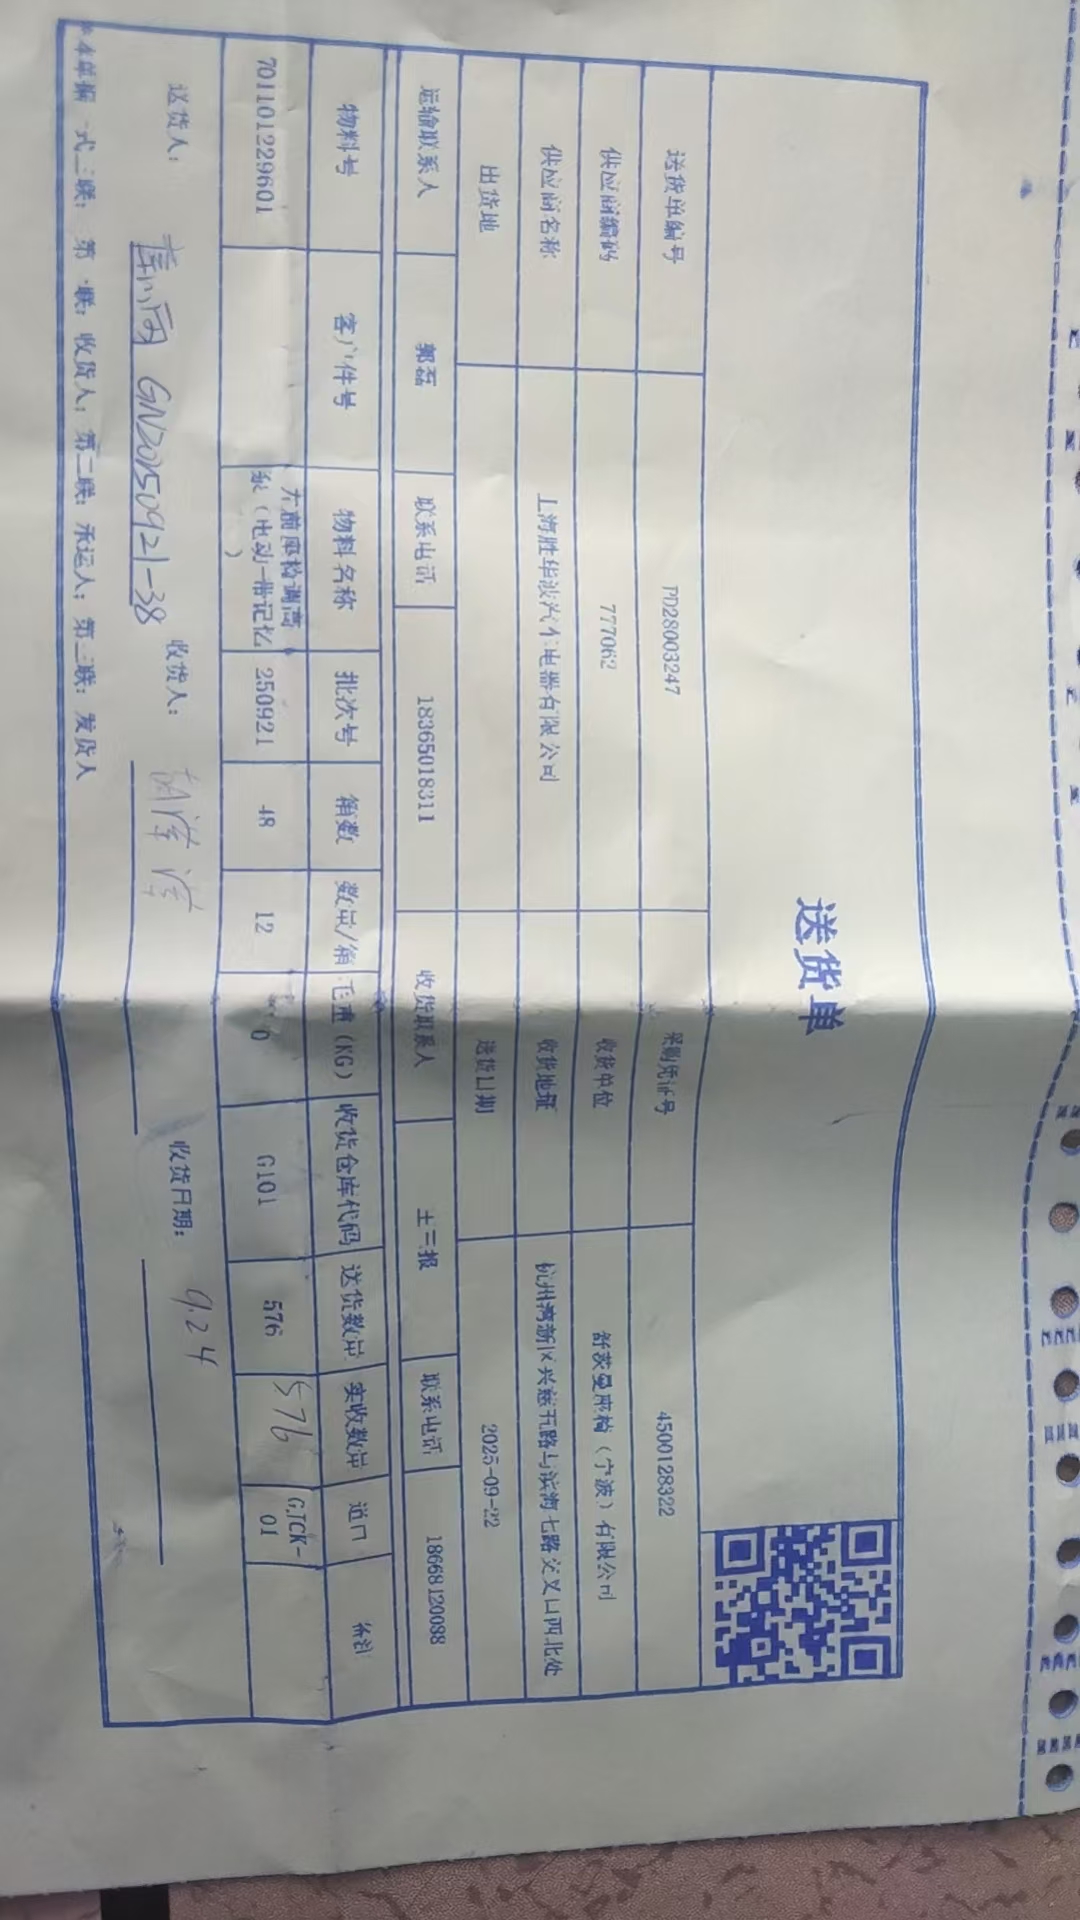 送货单
送货单编号 PD28003247 采购凭证号 4500128322
供应商编码 777062 收货单位 舒茨曼座椅（宁波）有限公司
供应商名称 上海胜华波汽车电器有限公司 收货地址 杭州湾新区兴慈五路与滨海七路交叉口西北处
出货地 送货日期 2025-09-22
运输联系人 郭磊 联系电话 18365018311 收货联系人 王三报 联系电话 18668120088
物料号 客户件号 物料名称 批次号 箱数 数量/箱 毛重(KG) 收货仓库代码 送货数量 实收数量 道口 备注
70110122960l 左前座椅调高 250921 48 12 0 G101 576 576 GJCK-
级（电动-带记忆 01
）
送货人： GN20250921-38 收货人： 收货日期： 9.24
*本单据一式三联：第一联：收货人；第二联：承运人；第三联：发货人